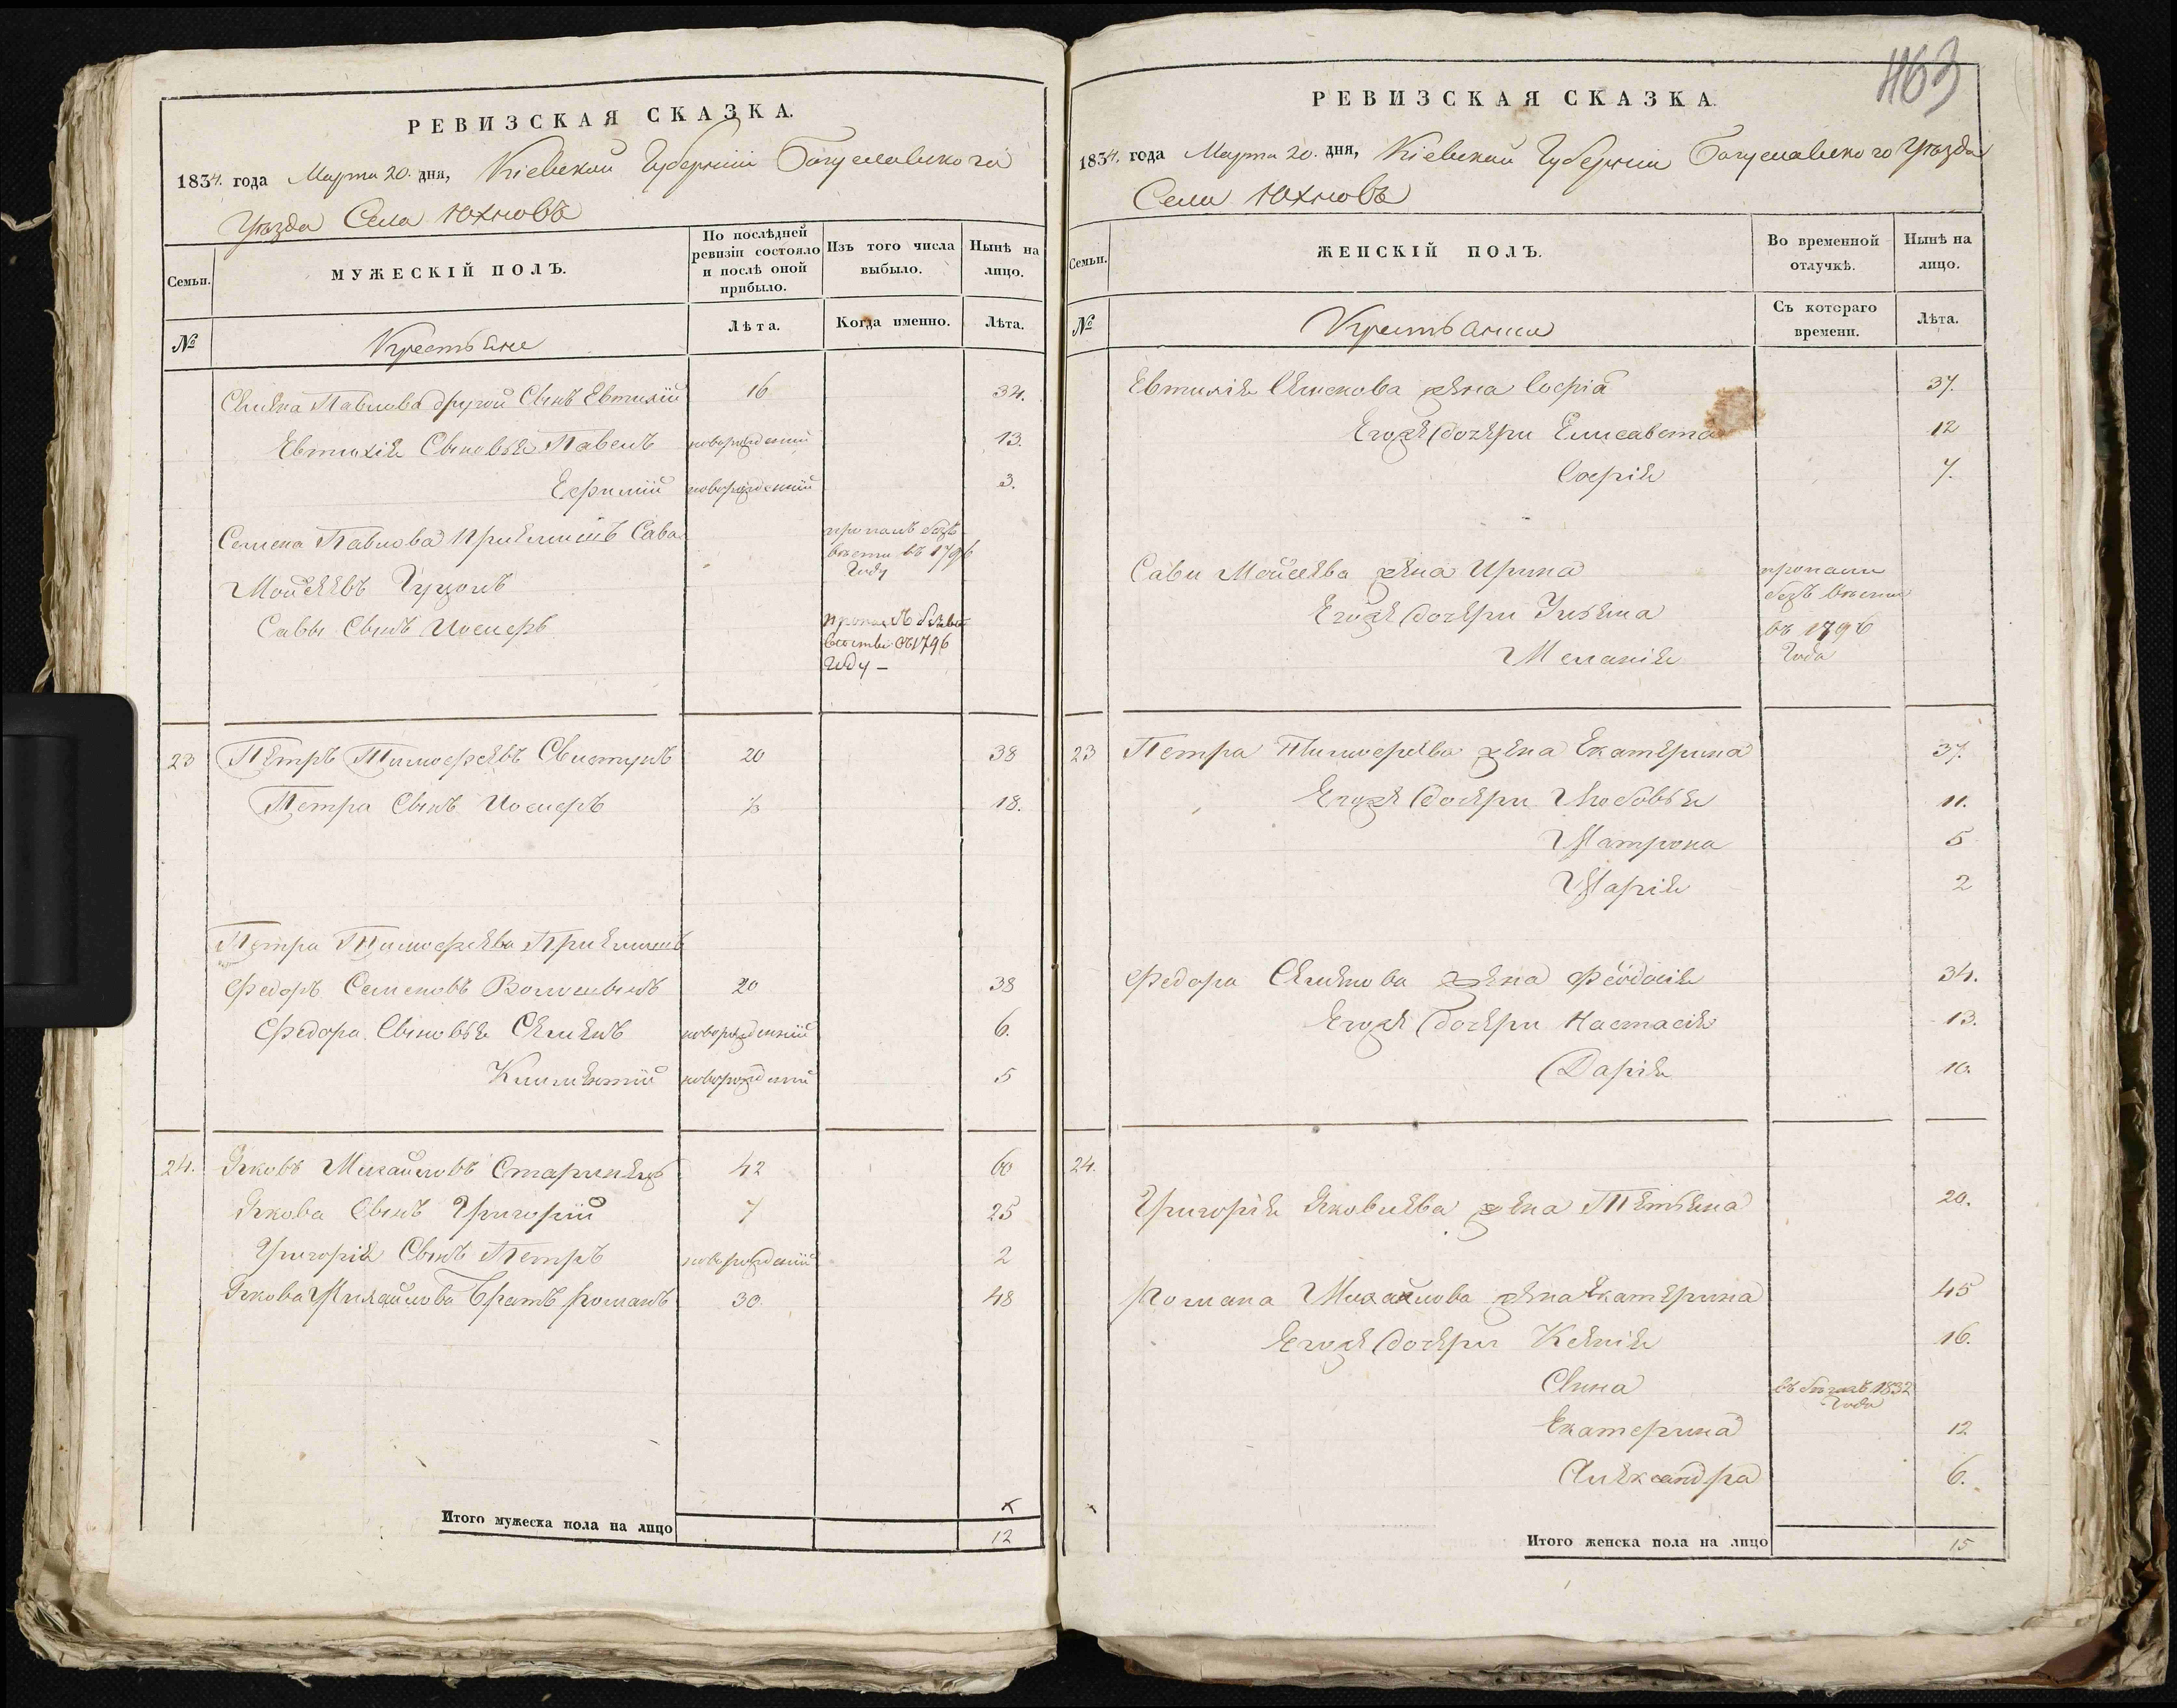 РЕВИЗСКАЯ СКАЗКА.
1834. года Марта 20. дня, Кіевской Губерніи Богуславского
Уѣзда Села Юхновъ
Семьи.
МУЖЕСКІЙ ПОЛЪ.
По послѣдней ревизіи состояло и послѣ оной прибыло.
Изъ того числа выбыло.
Нынѣ на лицо.
№
Крестьяне
Лѣта.
Когда именно.
Лѣта.
Семена Павлова другой Сынъ Евтихій 16 34.
Евтихія Сыновья Павелъ новорожденный 13.
Ефимій новорожденный 3.
Семена Павлова Приемышъ Сава
Мойсеевъ
пропалъ безъ
вести въ 1796
Году
Саввы Сынъ Иосифъ
въ 1796
Году –
23 Петръ Тимофеевъ Свистунъ 20 38
Петра Сынъ Иосифъ 18.
Петра Тимофеева Приемышъ
Федоръ Семеновъ 20 38
Федора Сыновья Семенъ новорожденный 6.
Климентій новорожденный 5
24. Яковъ Михайловъ 42 60
Якова Сынъ Григорій 7 25
Григорія Сынъ Петръ новорожденный 2
Якова Михайлова Братъ Романъ 30. 48
Итого мужеска пола на лицо
12
463
РЕВИЗСКАЯ СКАЗКА.
1834. года Марта 20. дня, Кіевской Губерніи Богуславского Уѣзда
Села Юхновъ
Семьи.
ЖЕНСКІЙ ПОЛЪ.
Во временной отлучкѣ.
Нынѣ на лицо.
№
Крестьянки
Съ котораго времени.
Лѣта.
Евтихія Семенова жена Софія 37.
Егоже дочери Елисавета 12
Софія 7.
Савы Мойсеева жена Ирина
Егоже дочери Ульяна
Меланія
пропали
безъ вести
въ 1796
Года
23 Петра Тимофеева жена Екатерина 37.
Егоже дочери Любовья 11.
Матрона 5
Марія 2
Федора Семенова жена Феодосія 34.
Егоже дочери Настасія 13.
Дарія 10.
24.
Григорія Яковлева жена Тетьяна 20.
Романа Михайлова жена Екатерина 45
Егоже дочери Ксенія 16.
Анна въ бѣгахъ 1832
Года
Екатерина 12
Александра 6.
Итого женска пола на лицо
15